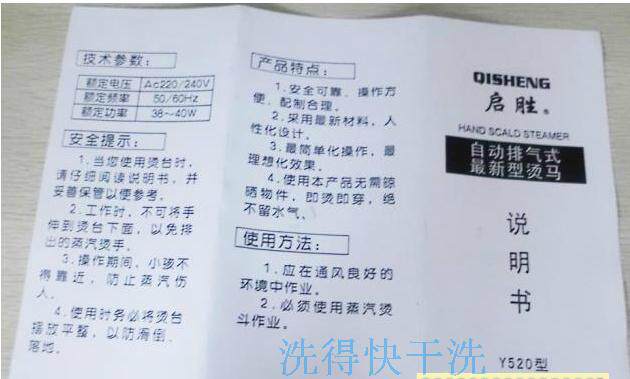 技术参数:
额定电压 Ac220/240V
额定频率 50/60Hz
额定功率 38~40W
安全提示:
1.当您使用烫台时,
请仔细阅读说明书,并
妥善保管以便参考。
2.工作时,不可将手
伸到烫台下面,以免排
出的蒸汽烫手。
3.操作期间,小孩不
得靠近,防止蒸汽伤
人。
4.使用时务必将烫台
摆放平整,以防滑倒、
落地。
产品特点:
1.安全可靠、操作方
便、配制合理。
2.采用最新材料,人
性化设计。
3.最简单化操作,最
理想化效果。
4.使用本产品无需晾
晒物件,即烫即穿,绝
不留水气。
使用方法:
1.应在通风良好的
环境中作业。
2.必须使用蒸汽烫
斗作业。
QISHENG
启胜®
HAND SCALD STEAMER
自动排气式
最新型烫马
说
明
书
Y520型
洗得快干洗